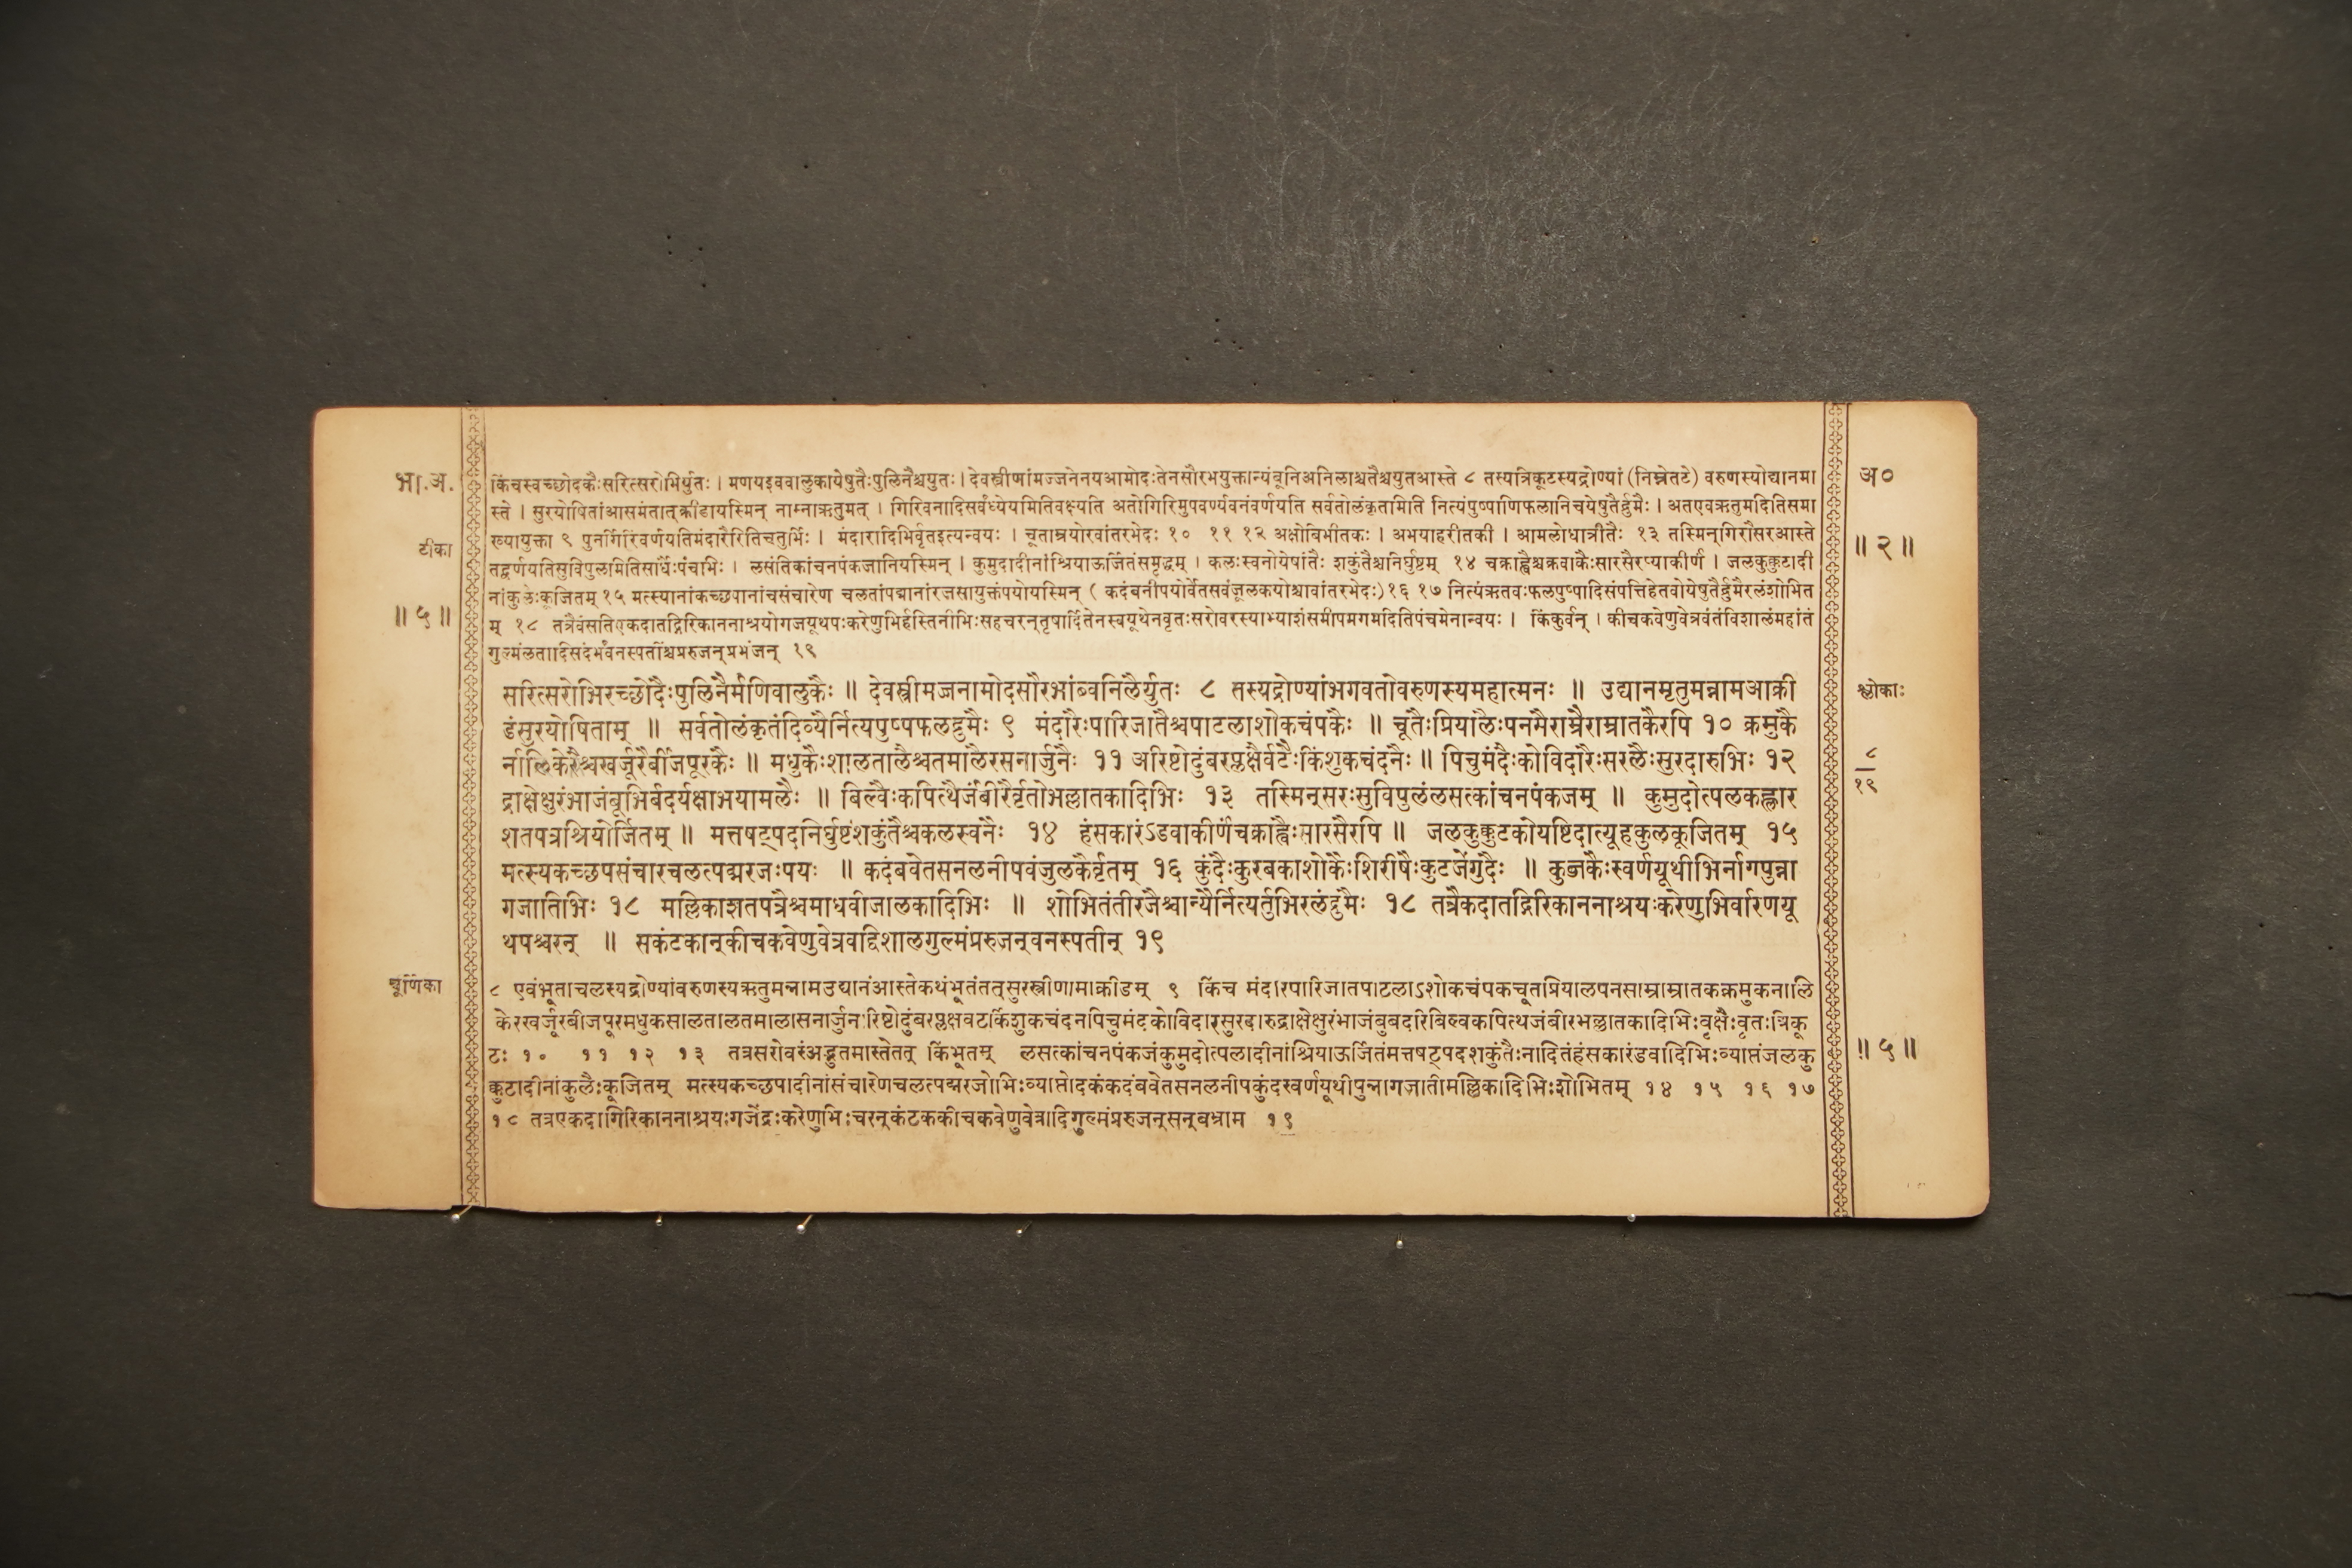 भा.अ.
टीका
॥५॥
किंचस्वच्छोदकैःसरित्सरोभिर्युतः । मणयइववालुकायेषुतैःपुलिनैश्चयुतः । देवस्त्रीणांमज्जनेनयआमोदःतेनसौरभयुक्तान्यंबूनिअनिलाश्चतैश्चयुतआस्ते ८ तस्यत्रिकूटस्यद्रोण्यां (निम्नेतटे) वरुणस्योद्यानमा
स्ते । सुरयोषितांआसमंतात्क्रीडायस्मिन् नाम्नाऋतुमत् । गिरिवनादिसर्वंध्येयमितिवक्ष्यति अतोगिरिमुपवर्ण्यवनंवर्णयति सर्वतोलंकृतामिति नित्यंपुष्पाणिफलानिचयेषुतैर्द्रुमैः । अतएवऋतुमदितिसमा
ख्यायुक्ता ९ पुनर्गिरिंवर्णयतिमंदारैरितिचतुर्भिः । मंदारादिभिर्वृतइत्यन्वयः । चूताम्रयोरवांतरभेदः १० ११ १२ अक्षोबिभीतकः । अभयाहरीतकी । आमलोधात्रीतैः १३ तस्मिन्गिरौसरआस्ते
तद्वर्णयतिसुविपुलमितिसार्धैःपंचभिः । लसंतिकांचनपंकजानियस्मिन् । कुमुदादीनांश्रियाऊर्जितंसमृद्धम् । कलःस्वनोयेषांतैः शकुंतैश्चनिर्घुष्टम् १४ चक्राह्वैश्चक्रवाकैःसारसैरप्याकीर्णं । जलकुक्कुटादी
नांकुलैःकूजितम् १५ मत्स्यानांकच्छपानांचसंचारेण चलतांपद्मानांरजसायुक्तंपयोयस्मिन् ( कदंबनीपयोर्वेतसवंजूलकयोश्चावांतरभेदः)१६ १७ नित्यंऋतवःफलपुष्पादिसंपत्तिहेतवोयेषुतैर्द्रुमैरलंशोभित
म् १८ तत्रैवंसतिएकदातद्गिरिकाननाश्रयोगजयूथपःकरेणुभिर्हस्तिनीभिःसहचरन्तृषार्दितेनस्वयूथेनवृतःसरोवरस्याभ्याशंसमीपमगमदितिपंचमेनान्वयः । किंकुर्वन् । कीचकवेणुवेत्रवंतंविशालंमहांतं
गुल्मंलतादिसंदर्भंवनस्पतींश्चप्ररुजन्प्रभंजन् १९
सरित्सरोभिरच्छोदैःपुलिनैर्मणिवालुकैः ॥ देवस्त्रीमज्जनामोदसौरभांब्वनिलैर्युतः ८ तस्यद्रोण्यांभगवतोवरुणस्यमहात्मनः ॥ उद्यानमृतुमन्नामआक्री
डंसुरयोषिताम् ॥ सर्वतोलंकृतंदिव्यैर्नित्यपुष्पफलद्रुमैः ९ मंदारैःपारिजातैश्चपाटलाशोकचंपकैः ॥ चूतैःप्रियालैःपनसैराम्रैराम्रातकैरपि १० क्रमुकै
र्नालिकेरैश्चखर्जूरैर्बीजपूरकैः ॥ मधुकैःशालतालैश्चतमालैरसनार्जुनैः ११ अरिष्टोदुंबरप्लक्षैर्वटैःकिंशुकचंदनैः ॥ पिचुमंदैःकोविदारैःसरलैःसुरदारुभिः १२
द्राक्षेक्षुरंभाजंबूभिर्बदर्यक्षाभयामलैः ॥ बिल्वैःकपित्थैर्जंबीरैर्वृतोभल्लातकादिभिः १३ तस्मिन्सरःसुविपुलंलसत्कांचनपंकजम् ॥ कुमुदोत्पलकह्लार
शतपत्रश्रियोर्जितम् ॥ मत्तषट्पदनिर्घुष्टंशकुंतैश्चकलस्वनैः १४ हंसकारंऽडवाकीर्णंचक्राह्वैःसारसैरपि ॥ जलकुक्कुटकोयष्टिदात्यूहकुलकूजितम् १५
मत्स्यकच्छपसंचारचलत्पद्मरजःपयः ॥ कदंबवेतसनलनीपवंजुलकैर्वृतम् १६ कुंदैःकुरबकाशोकैःशिरीषैःकुटजेंगुदैः ॥ कुब्जकैःस्वर्णयूथीभिर्नागपुन्ना
गजातिभिः १८ मल्लिकाशतपत्रैश्चमाधवीजालकादिभिः ॥ शोभितंतीरजैश्चान्यैर्नित्यर्तुभिरलंद्रुमैः १८ तत्रैकदातद्गिरिकाननाश्रयःकरेणुभिर्वारणयू
थपश्चरन् ॥ सकंटकान्कीचकवेणुवेत्रवद्विशालगुल्मंप्ररुजन्वनस्पतीन् १९
चूर्णिका
८ एवंभूताचलस्यद्रोण्यांवरुणस्यऋतुमन्नामउद्यानंआस्तेकथंभूतंतत्सुरस्त्रीणामाक्रीडम् ९ किंच मंदारपारिजातपाटलाऽशोकचंपकचूतप्रियालपनसाम्राम्रातकक्रमुकनालि
केरखर्जूरबीजपूरमधुकसालतालतमालासनार्जुनारिष्टोदुंबरप्लक्षवटकिंशुकचंदनपिचुमंदकोविदारसुरदारुद्राक्षेक्षुरंभाजंबुबदरिबिल्वकपित्थजंबीरभल्लातकादिभिःवृक्षैःवृतःत्रिकू
टः १० ११ १२ १३ तत्रसरोवरंअद्भुतमास्तेतत् किंभूतम् लसत्कांचनपंकजंकुमुदोत्पलादीनांश्रियाऊर्जितंमत्तषट्पदशकुंतैःनादितंहंसकारंडवादिभिःव्याप्तंजलकु
क्कुटादीनांकुलैःकूजितम् मत्स्यकच्छपादीनांसंचारेणचलत्पद्मरजोभिःव्याप्तोदकंकदंबवेतसनलनीपकुंदस्वर्णयूथीपुन्नागजातीमल्लिकादिभिःशोभितम् १४ १५ १६ १७
१८ तत्रएकदागिरिकाननाश्रयःगजेंद्रःकरेणुभिःचरन्कंटककीचकवेणुवेत्रादिगुल्मंप्ररुजन्सन्बभ्राम १९
अ०
॥२॥
श्लोकाः
८
१९
॥५॥